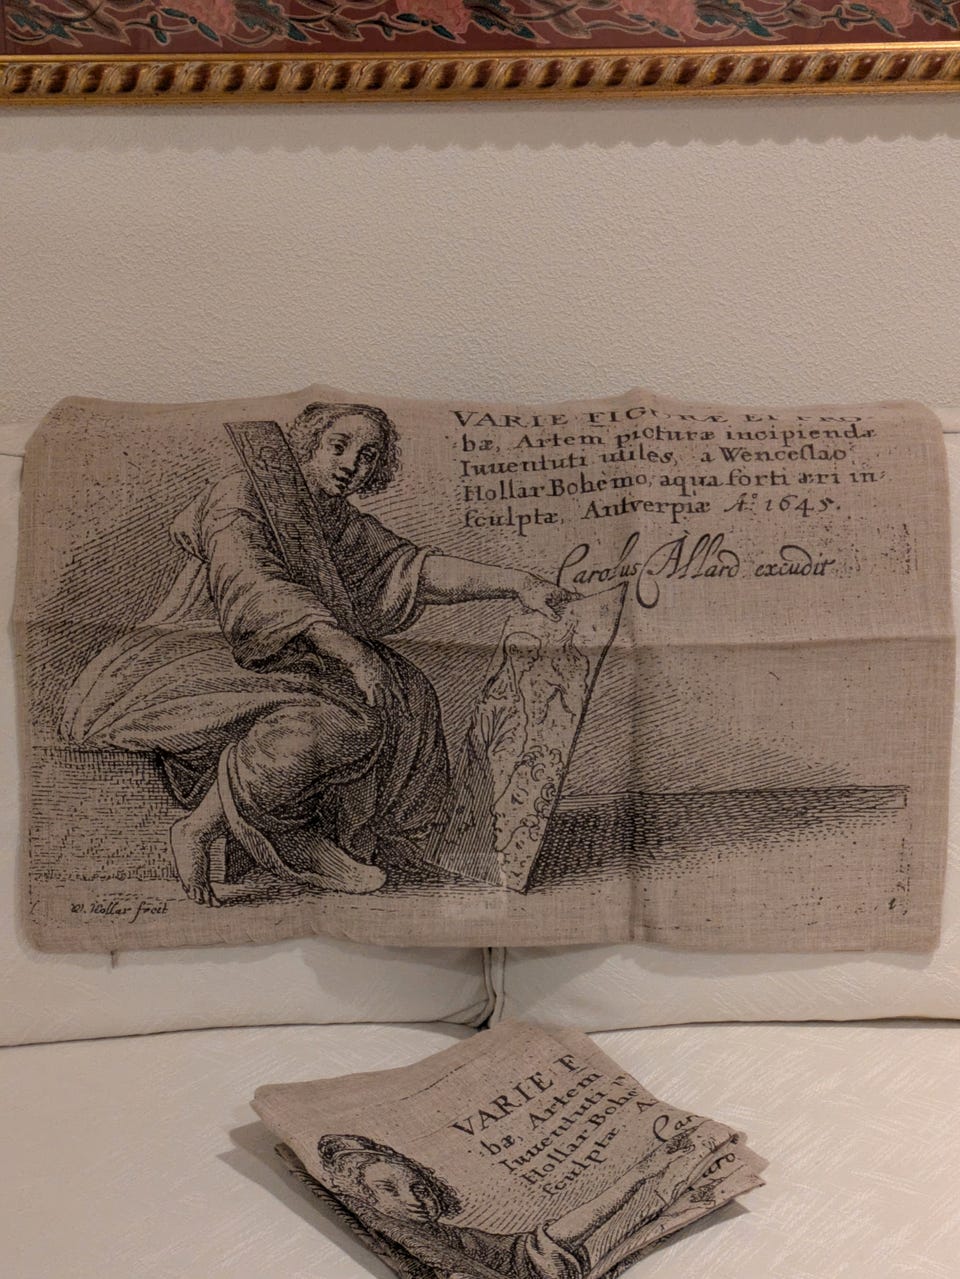 VARIE FIGURÆ ET PRO-
bæ, Artem picturæ incipiendæ
Iuuentuti utiles, a Wenceslao
Hollar Bohemo, aqua forti æri in-
sculptæ, Antverpiæ Aº. 1645.
Carolus Allard excudit
W. Hollar fecit
VARIE F
bæ, Artem
Iuuentuti
Hollar Bohe
sculptæ, A
Car